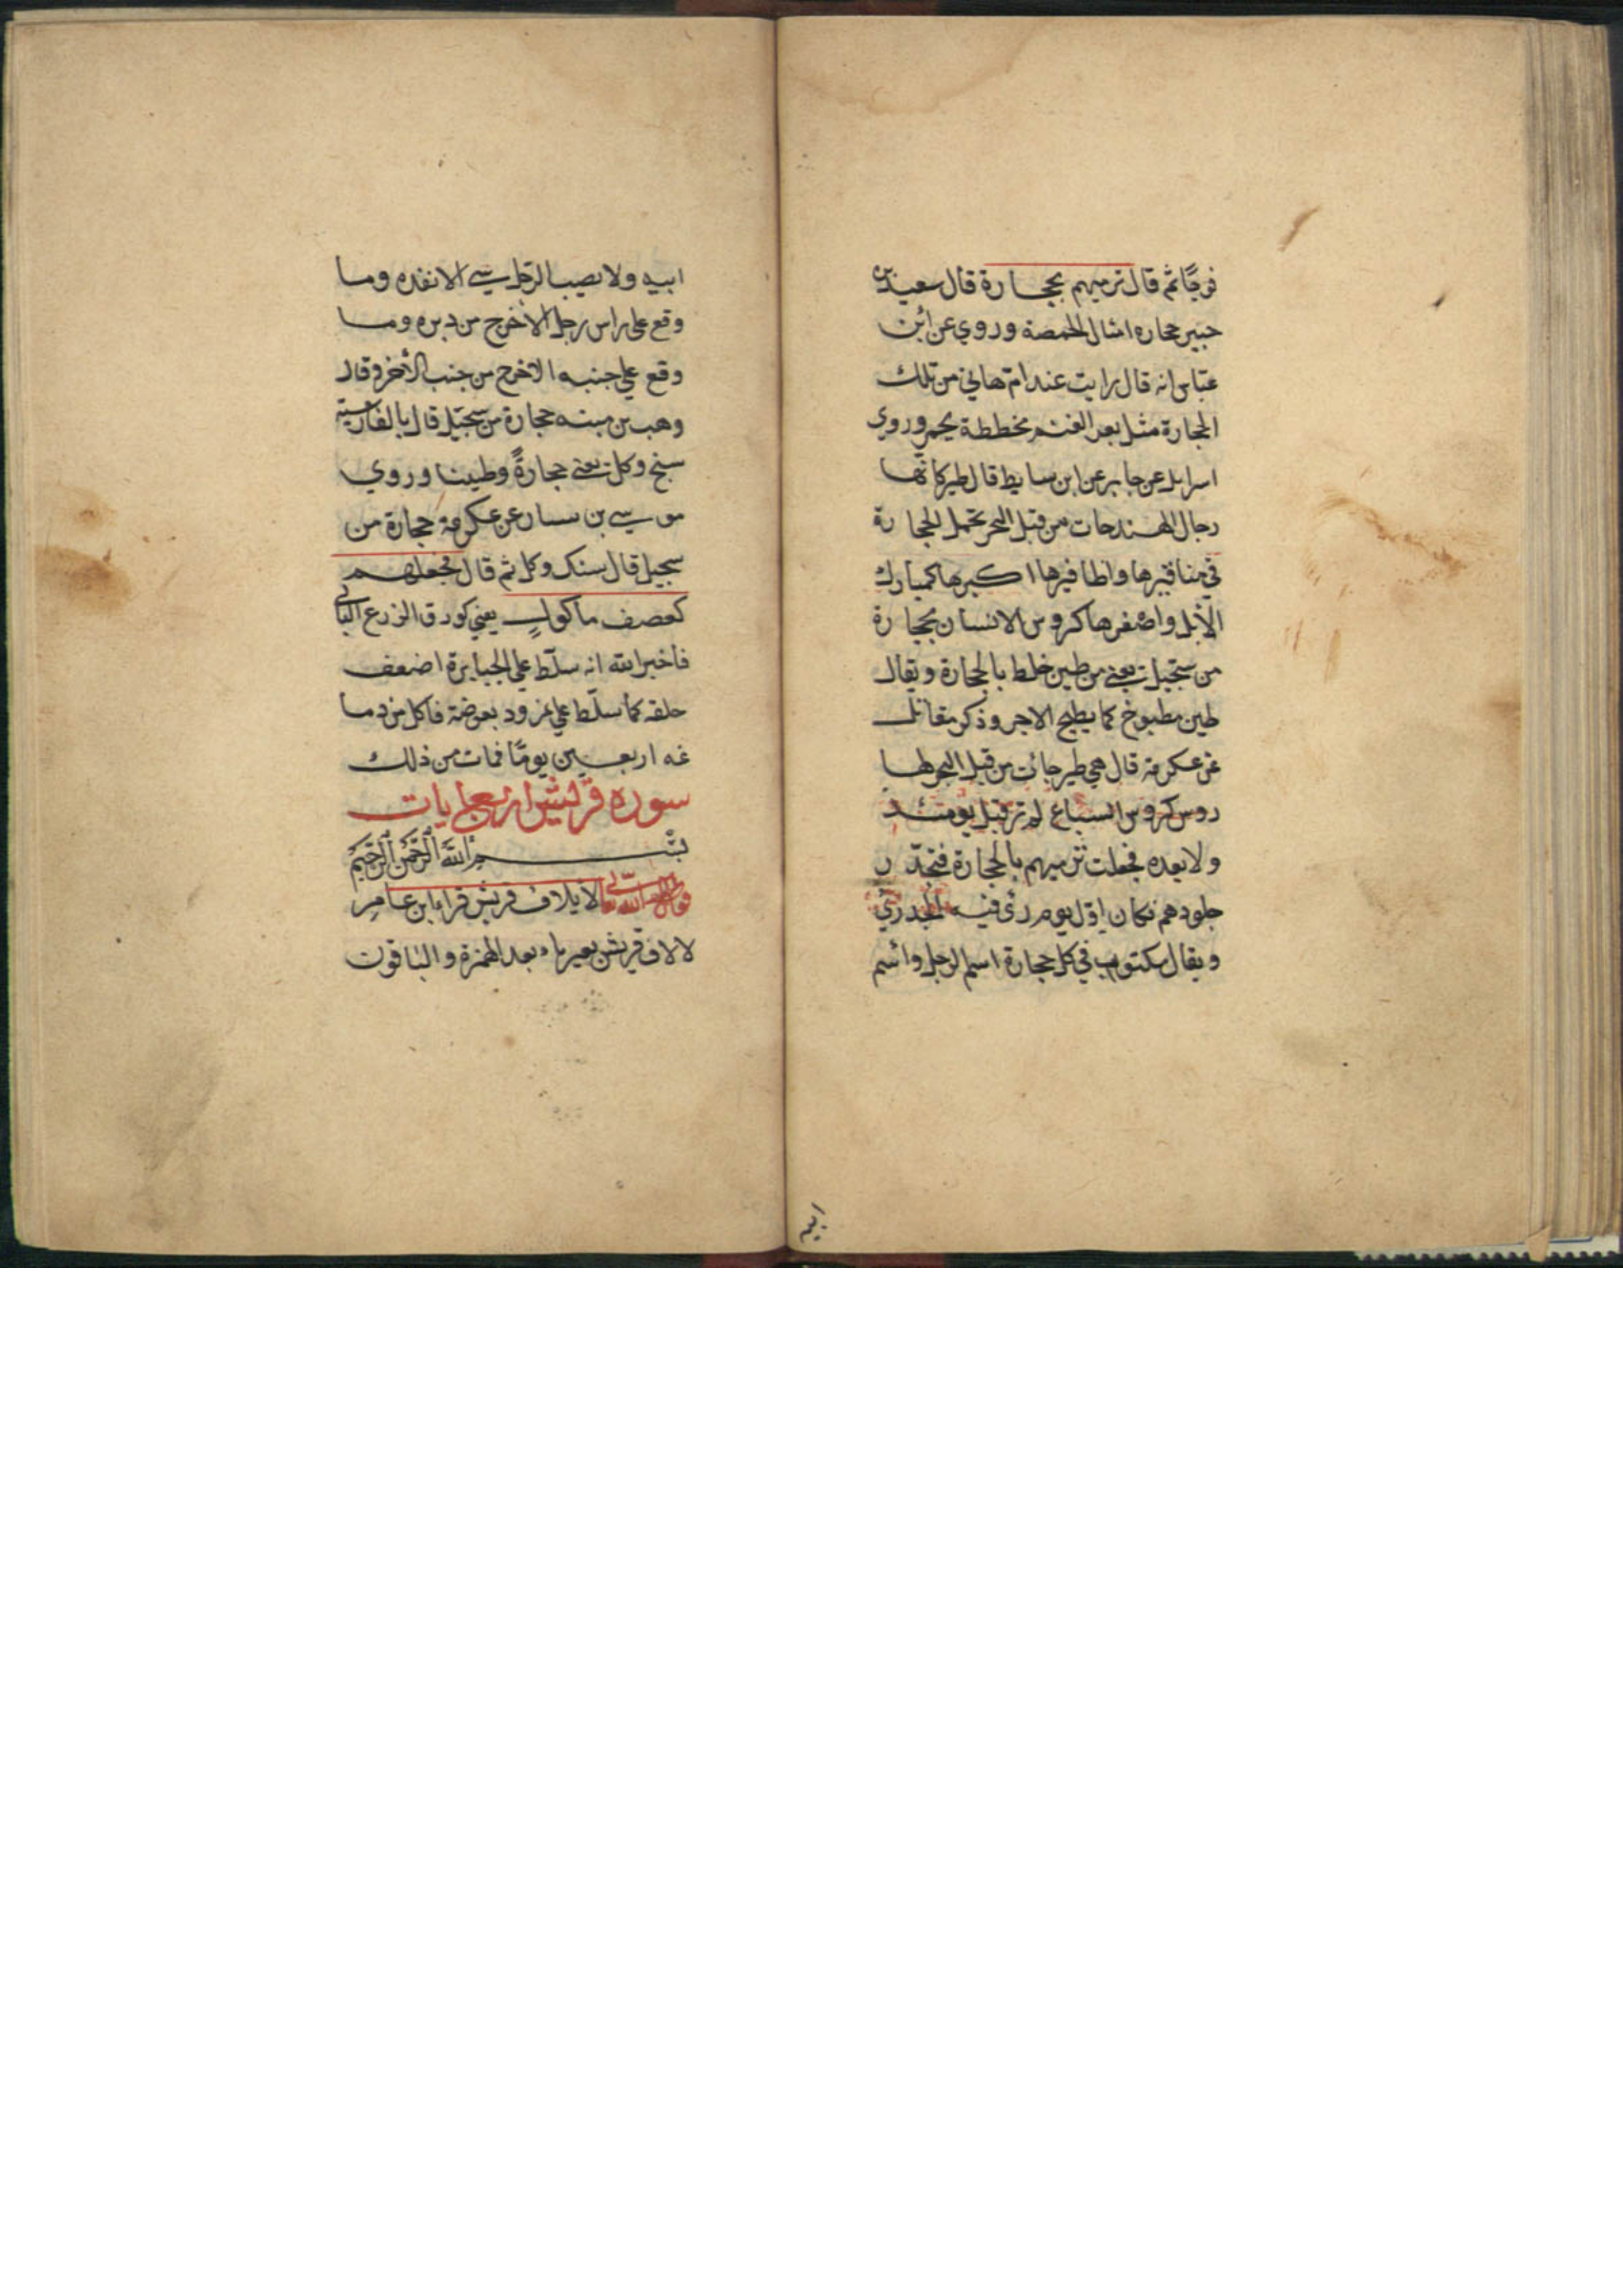 فوجًا ثم قال ترميهم بحجارة قال سعيد بن
جبير حجاره امثال الحمصة وروي عن ابن
عبّاس انه قال رايت عند امّ هاني من تلك
الحجارة مثل بعر الغنم مخططة بحمر وروي
اسرايل عن جابر عن ابن سابط قال طير كانّها
رجال الهند جات من قبل البحر تحمل الحجارة
في مناقيرها واظافيرها اكبرها كمبارك
الابل واصغرها كروس الانسان بحجارة
من سجيل يعني من طين خلط بالحجارة ويقال
طين مطبوخ كما يطبخ الاجر وذكر مقاتل
عن عكرمة قال هي طير جائت من قبل البحر لها
روس كروس السباع لم تر قبل يومئذ
ولا بعده فجعلت ترميهم بالحجارة فتجدّر
جلودهم فكان اوّل يوم رئ فيه الجدري
ويقال مكتوب في كل حجارة اسم الرجل واسم
ابيه
ابيه ولا يصيب الرّجل شي الا نفده وما
وقع على راس رجل الا خرج من دبره وما
وقع علي جنبه الا خرج من جنب الاخر وقال
وهب بن منبه حجارة من سجّيل قال بالفارسيّة
سنج وكل يعني حجارةً وطينا وروي
موسي بن بسار عن عكرمة حجارة من
سجيل قال سنك وكل ثم قال فجعلهم
كعصف ماكول يعني كورق الزرع البالي
فاخبر الله انه سلّط علي الجبابرة اضعف
خلقه كما سلّط علي نمرود بعوضة فاكل من دما
غه اربعين يومًا فمات من ذلك
سورة قريش اربع ايات
بسم الله الرّحمن الرّحيم
قول الله تعالى لايلاف قريش قراء ابن عامر
لالاف قريش بغير ياء بعد الهمزة والباقون